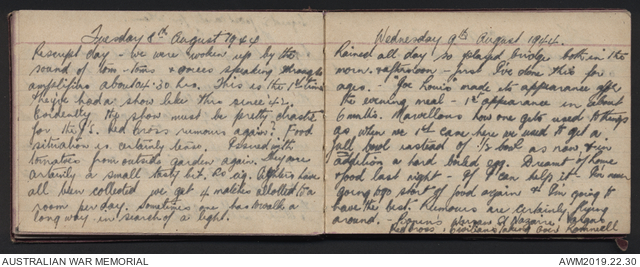 Tuesday 8th August 1944
Rescript day - we were woken up by the
sound of tom-toms & voices speaking through
amplifiers about 4.30 hrs. This is the 1st time
they've had a show like this since 42.
Evidently the show must be pretty drastic
for the J's. Red Cross rumours again? Food
situation is certainly tense. Issued with
tomatoes from outside garden again. They are
certainly a small tasty bit. Lighters have
all been collected we get 4 matches allotted to a
room per day. Sometimes one has to walk a
long way in search of a light.
Wednesday 9th August 1944.
Rained all day so played bridge both in the
morn. & afternoon - first I've done this for
ages. "Joe Louis" made its appearance after
the evening meal - 1st appearance in about
6 mths. Marvellous how one gets used to things
as when we 1st came here we used to get a
full bowl instead of ½ bowl as now & in
addition a hard boiled egg. Dreamt of home
& food last night - If I can help it - I'm never
going to be short of food again & I'm going to
have the best. Rumours are certainly flying
around. - Nazaire,
Red Cross, Civilians taking over
AUSTRALIAN WAR MEMORIAL
AWM2019.22.30